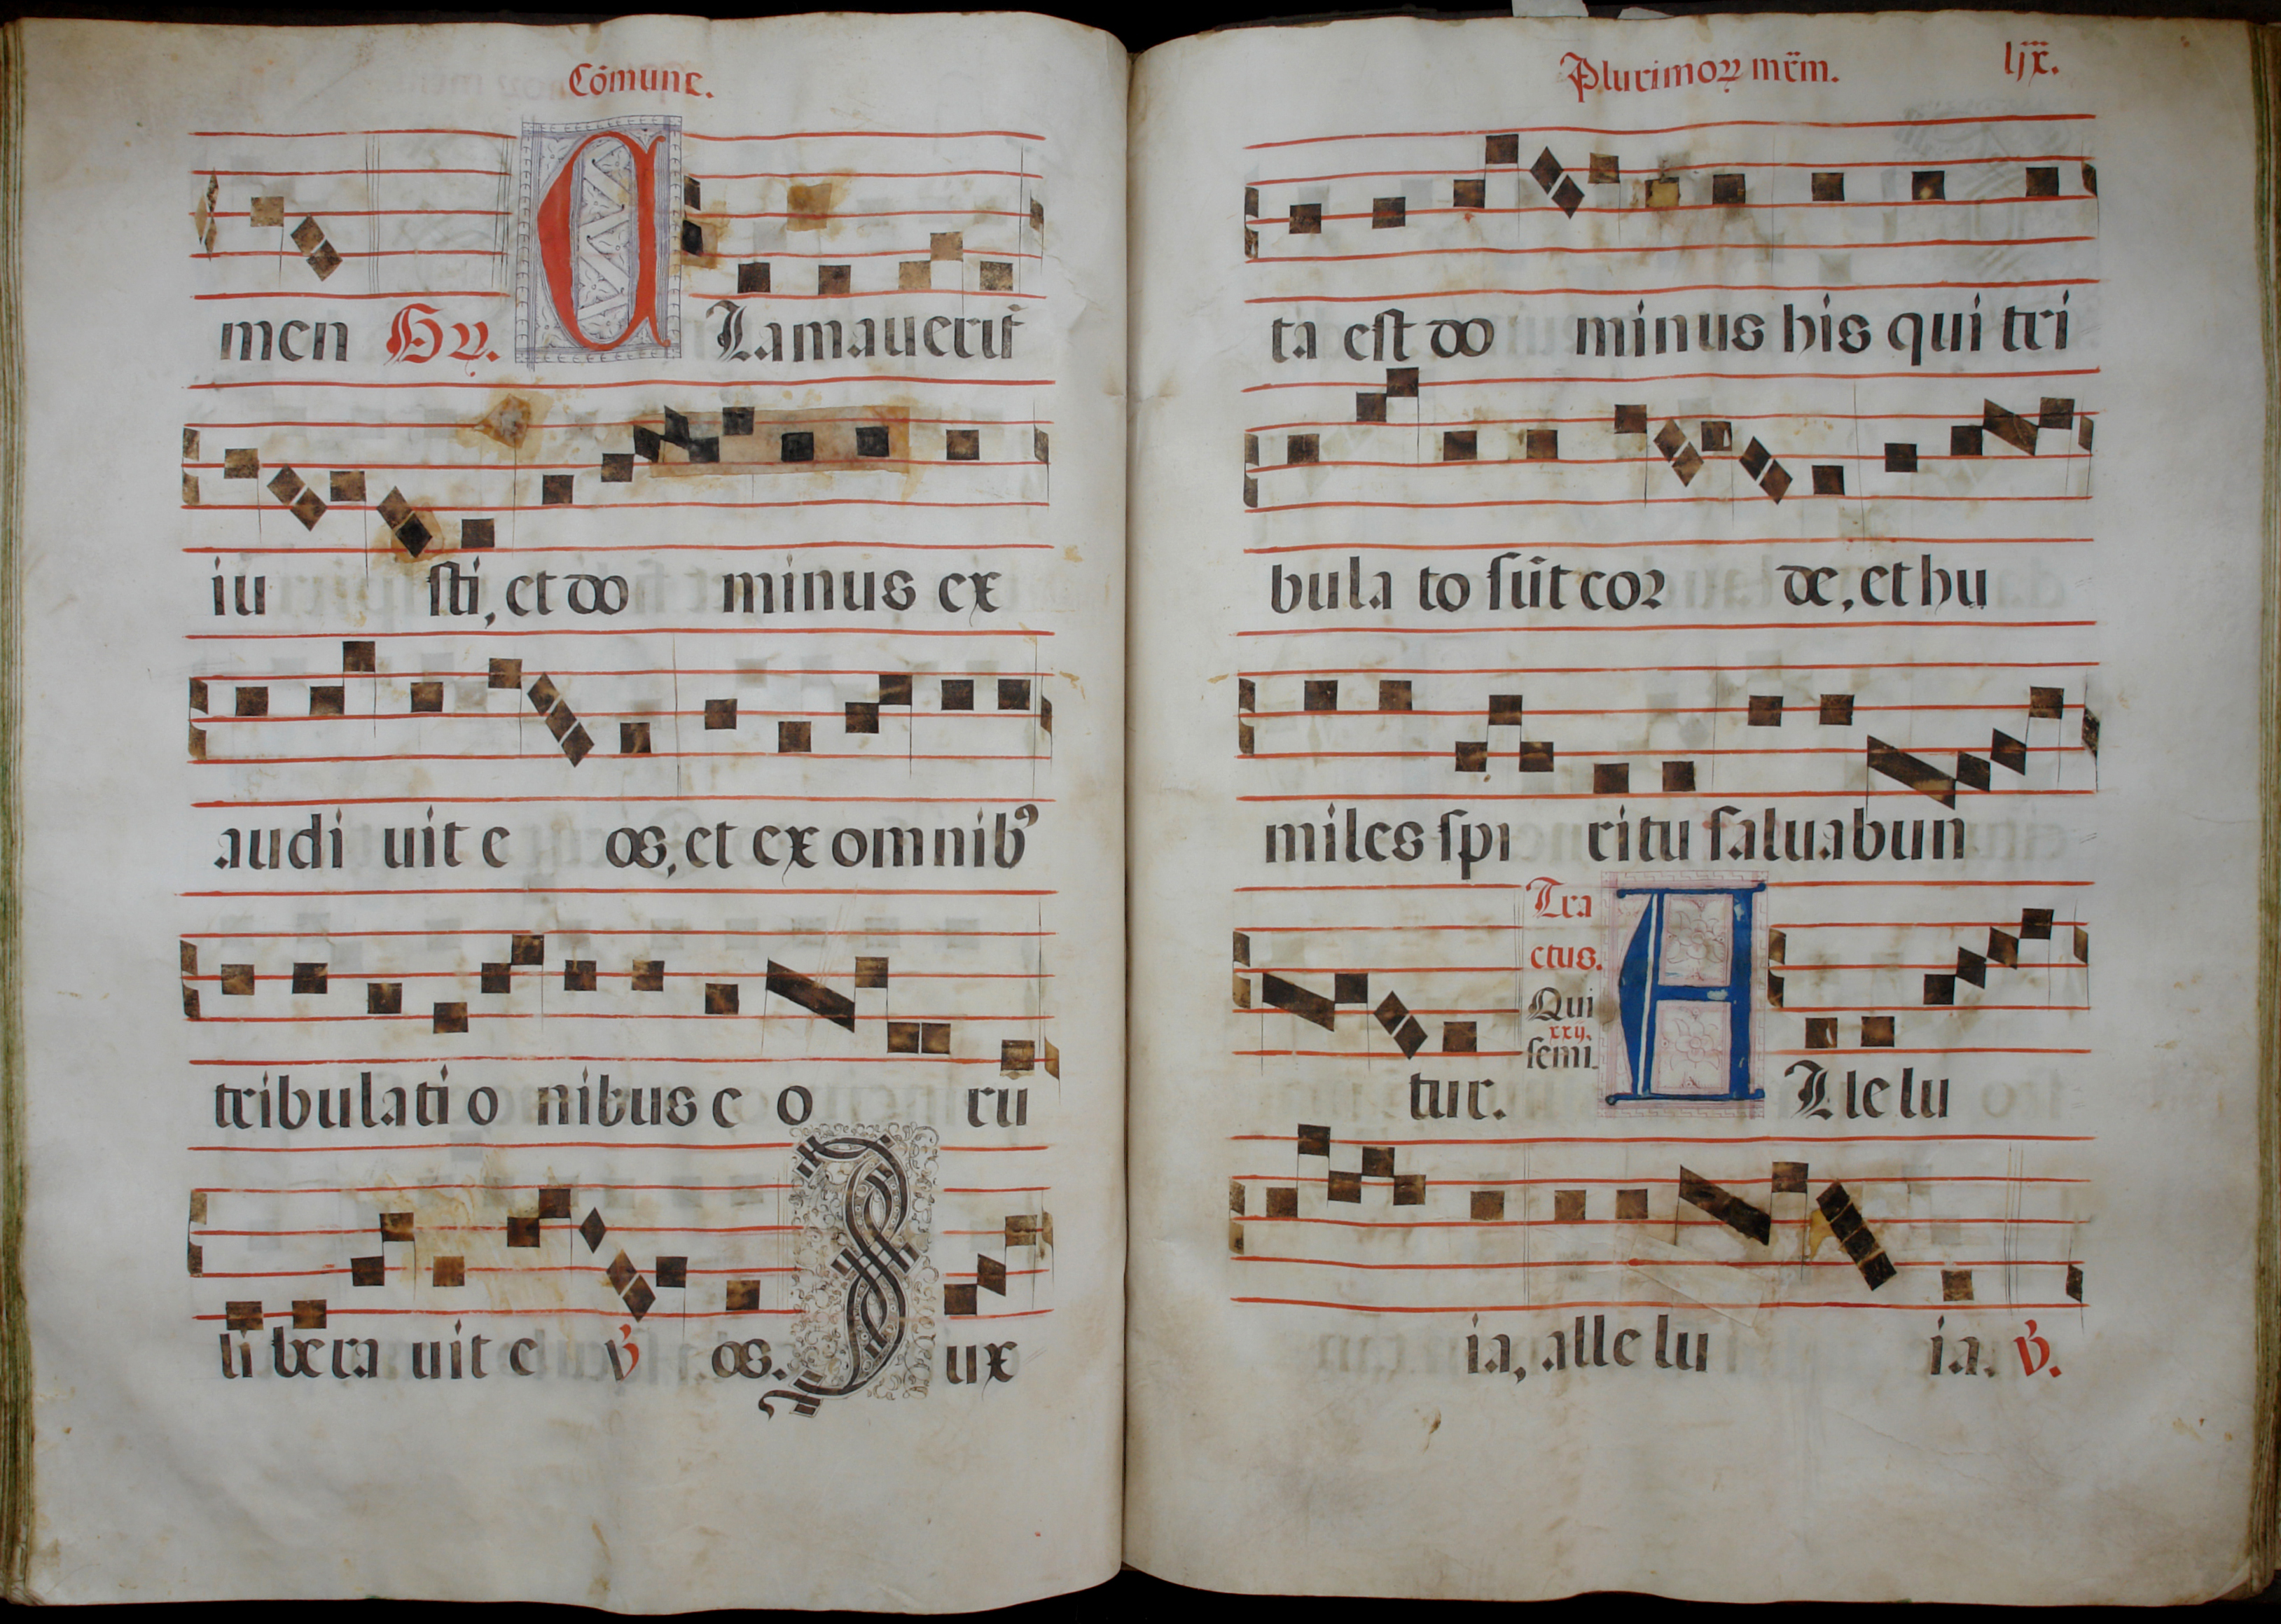 Cōmune.
men Gv. C Lamauerūt
iu sti, et do minus ex
audi uit e os, et ex omnibꝰ
tribulati o nibus e o rū
li bera uit e ℣ os. I ux
Plurimoꝝ mr̄m.
ta est do minus his qui tri
bula to sūt cor de, et hu
miles spi ritu saluabun
tur. Tra ctus. Qui xxij. semi. A Lle lu
ia, alle lu ia. ℣.